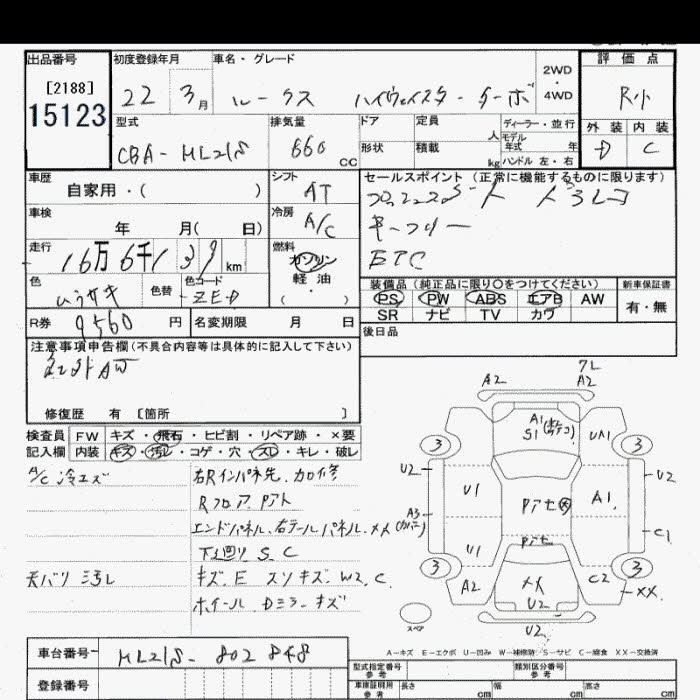 出品番号
[2188]
15123
初度登録年月
22 3月
車名・グレード
ルークス ハイウェイスターターボ
2WD
・
4WD
評価点
R小
外装 内装
D C
型式
CBA-ML21S
排気量
660 CC
ドア
形状
定員 人
積載 kg
ディーラー・並行
モデル
年式 年
ハンドル 左・右
車歴
自家用・( )
シフト
AT
セールスポイント (正常に機能するものに限ります)
キーフリー
ETC
車検
年 月( 日)
冷房
A/C
走行
16万6千139km
燃料
ガソリン
軽油
・( )
色
ムラサキ
色替
色コード
ZED
装備品 (純正品に限り○をつけてください)
PS PW ABS エアB AW
SR ナビ TV カワ
新車保証書
有・無
R券
9560円
名変期限 月 日
後日品
注意事項申告欄(不具合内容等は具体的に記入して下さい)
社外AW
修復歴 有 〔箇所 〕
検査員
記入欄
FW キズ・飛石・ヒビ割・リペア跡・×要
内装 キズ・汚レ・コゲ・穴・スレ・キレ・破レ
A/C 冷エズ
右Rインパネ先、加修
Rフロア、Pアト
エンドパネル、右テールパネル、XX(カバー)
下廻リ S、C
天バリ 汚レ
キズ、E スソキズ、W2、C
ホイール、Dミラーキズ
7L
A2 A2
A1
S1
3 UA1 3
U2 U1 A1 U2
A3 C1
U1
3 3
A2 XX C2 XX
U2
U2
スペア
A－キズ E－エクボ U－凹み W－補修跡 S－サビ C－腐食 XX－交換済
車台番号
ML21S-802848
登録番号
型式指定番号
参考
類別区分番号
参考
車庫証明用
参考
長さ cm 幅 cm 高さ cm